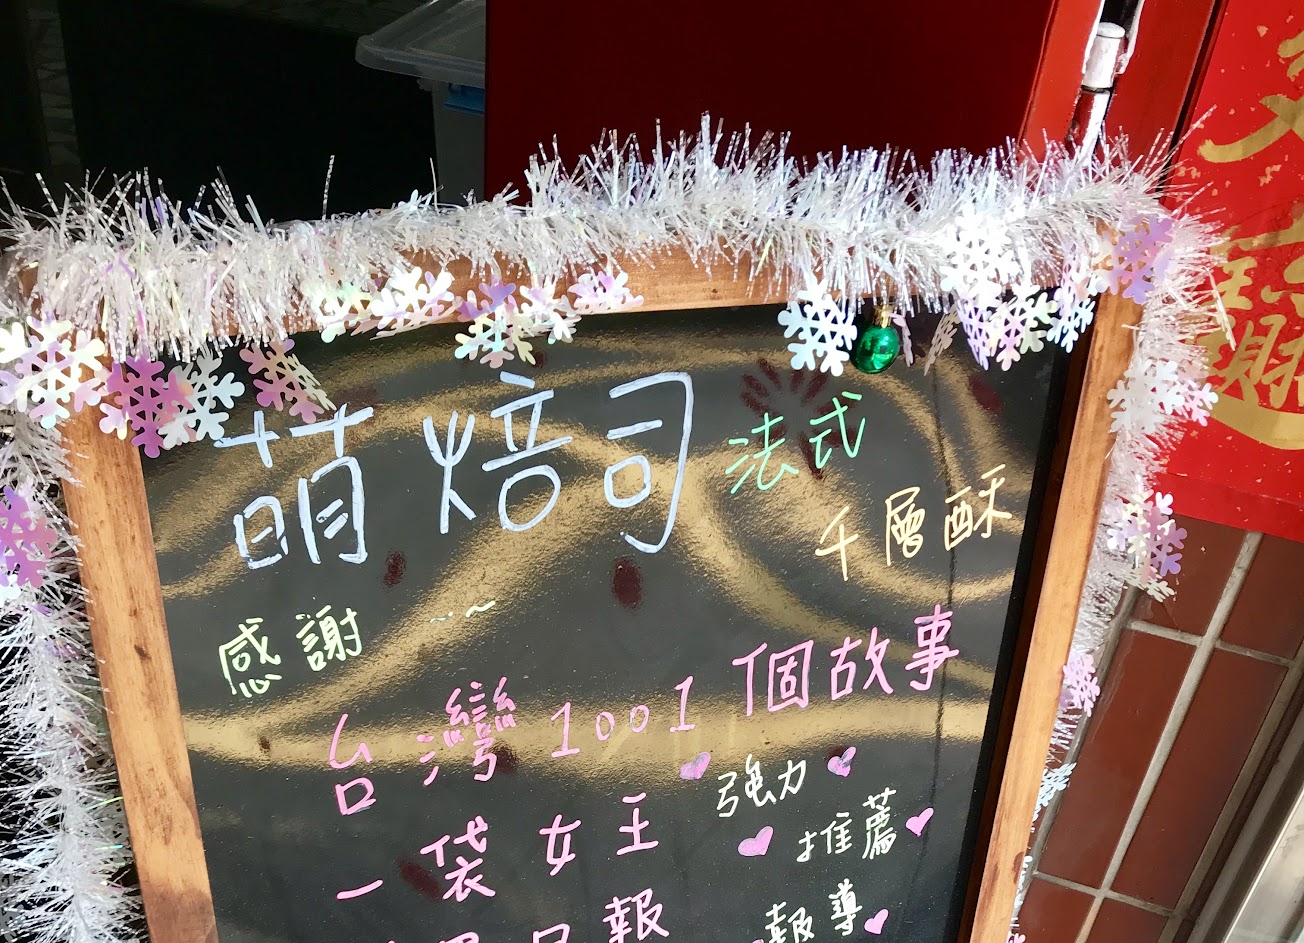 萌焙司 法式
千層酥
感謝
台灣1001個故事
強力
一袋女王
推薦
日報
報導
財